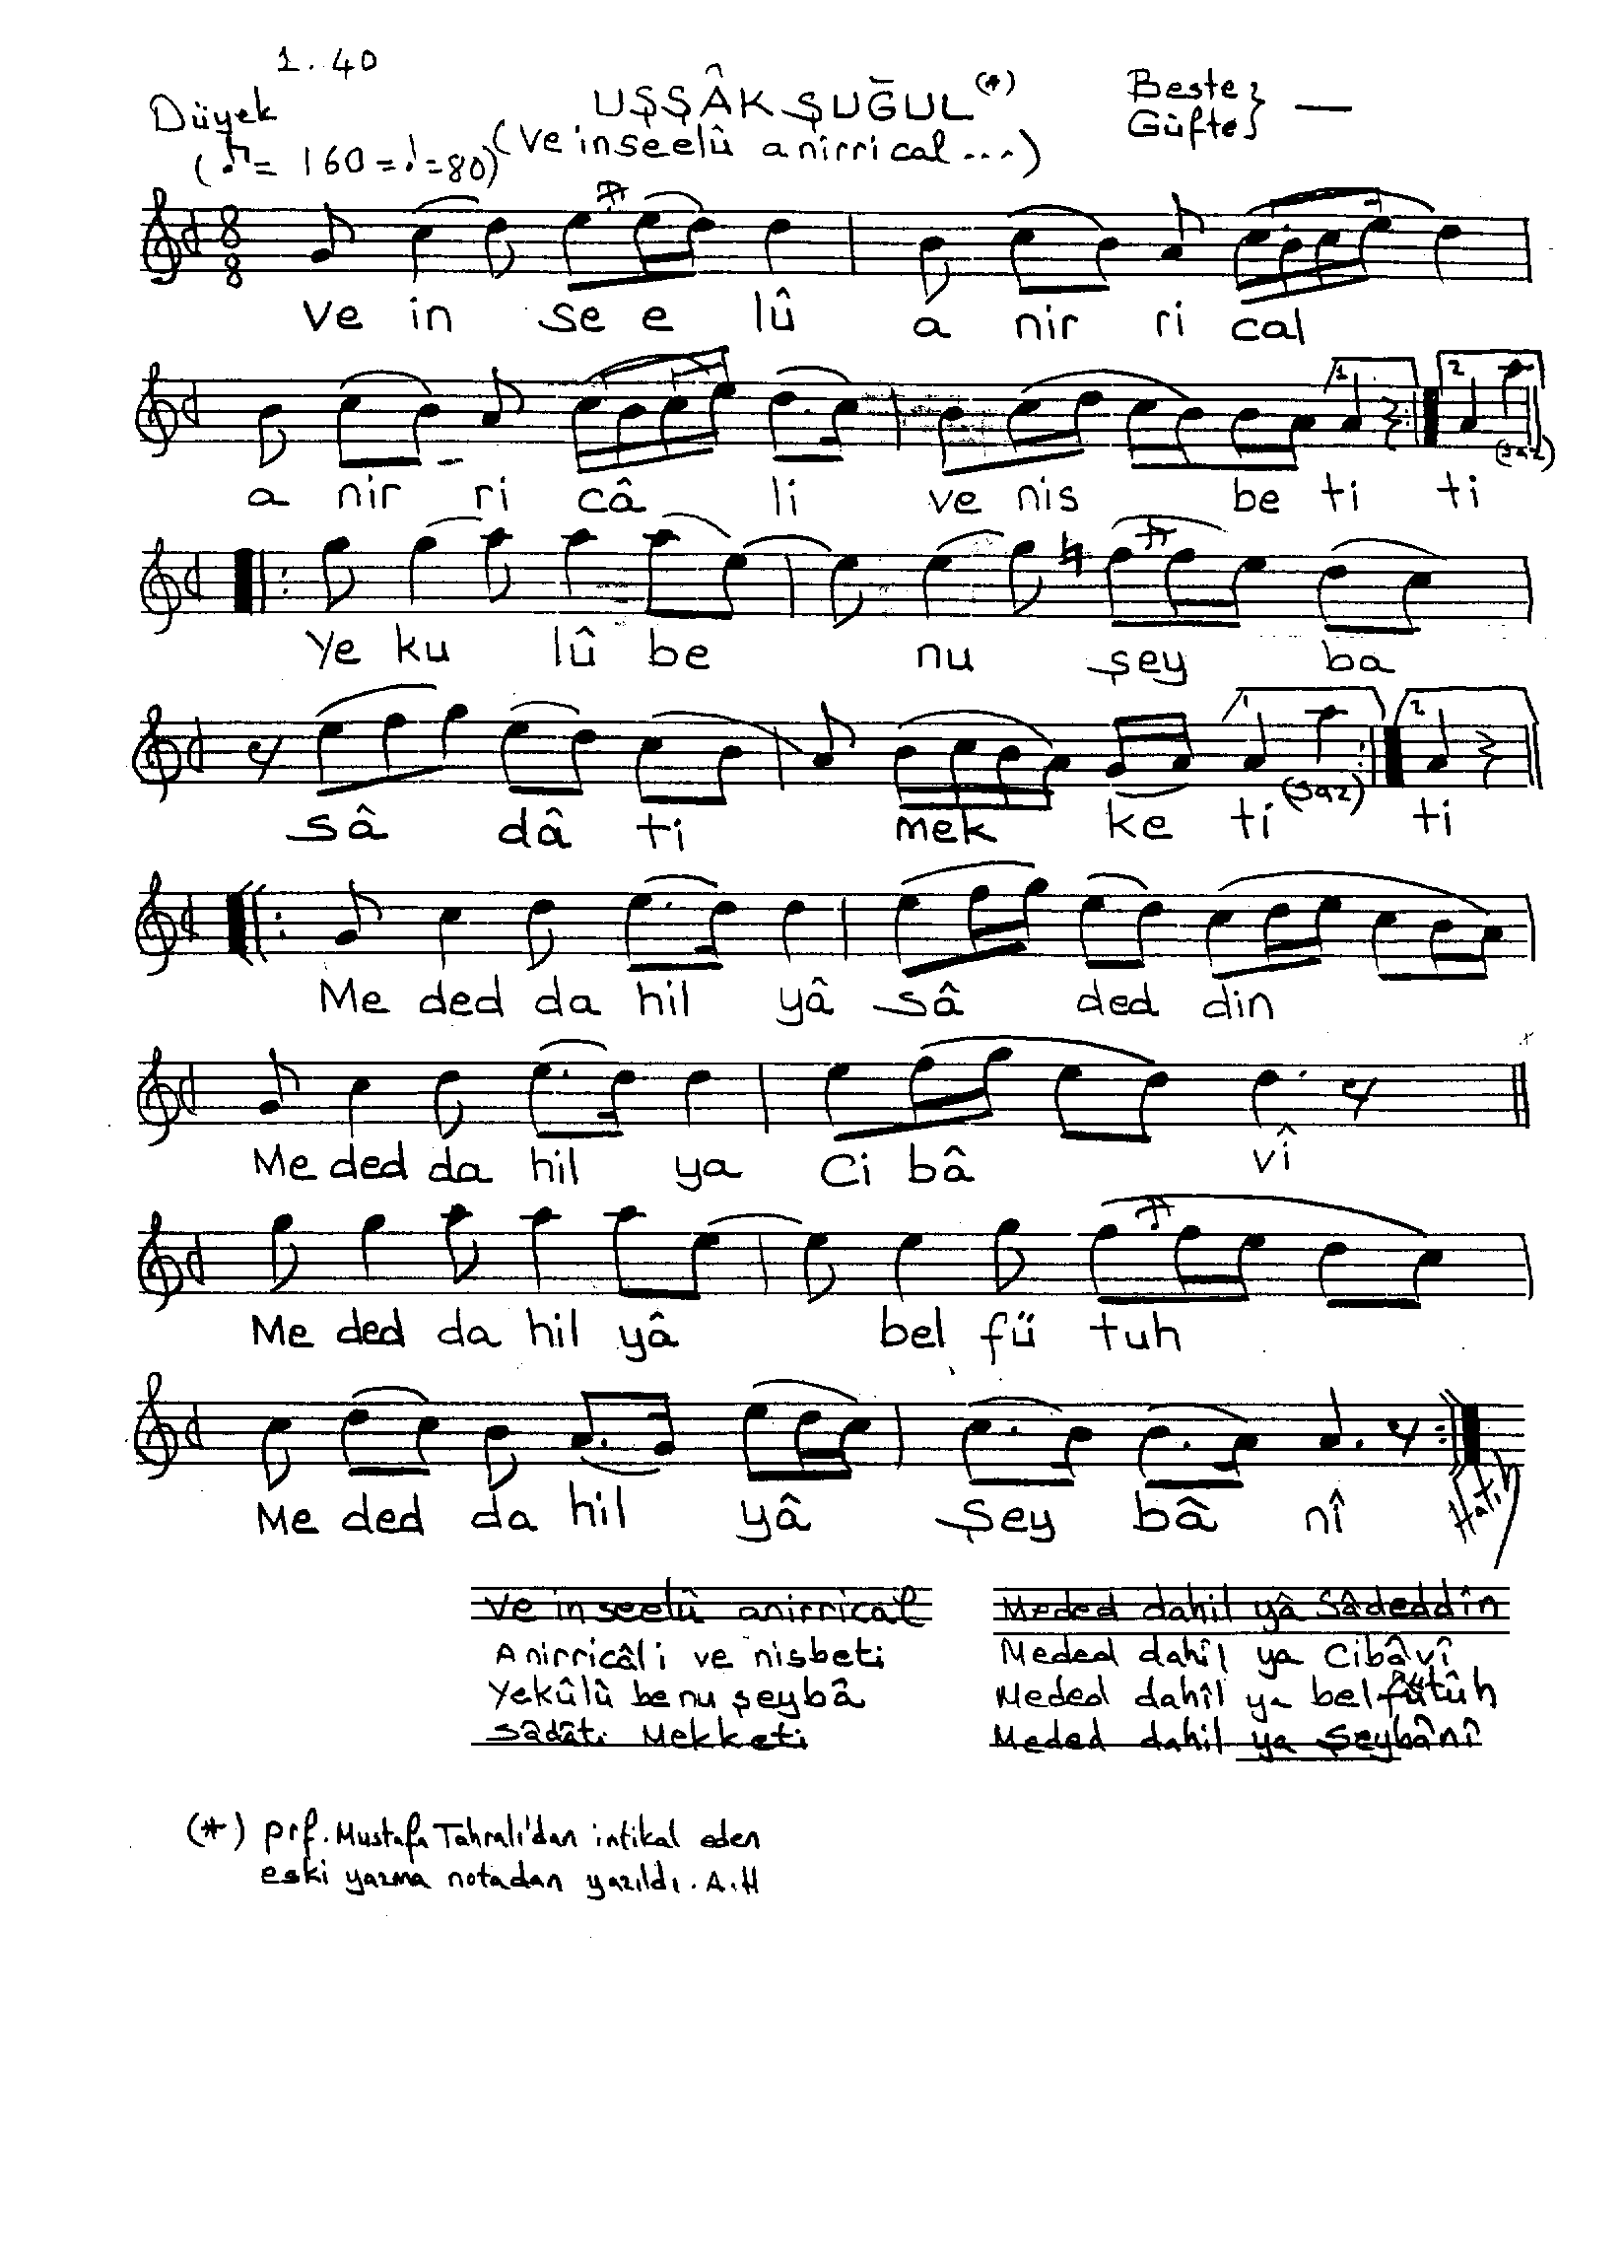 1.40
Düyek
UŞŞÂK ŞUĞUL (*)
Beste }
Güfte } —
(♪ = 160 = ♩ = 80)
(Ve inseelû anirrical ...)
8
8
Ve in se e lû a nir ri cal
1 2
(saz)
a nir ri câ li ve nis be ti ti
Ye ku lû be nu şey ba
1 (saz) 2
sâ dâ ti mek ke ti ti
Me ded da hil yâ sâ ded din
Me ded da hil ya Ci bâ vî
Me ded da hil yâ bel fü tuh
Me ded da hil yâ Şey bâ nî
Hatip
Ve inseelû anirrical
Anirricâli ve nisbeti
Yekûlû benu şeybâ
Sâdâti Mekketi
Meded dahil yâ Sâdeddîn
Meded dahîl ya Cibâvî
Meded dahîl ya belfütûh
Meded dahil ya Şeybânî
(*) prf. Mustafa Tahralı'dan intikal eden
eski yazma notadan yazıldı. A.H